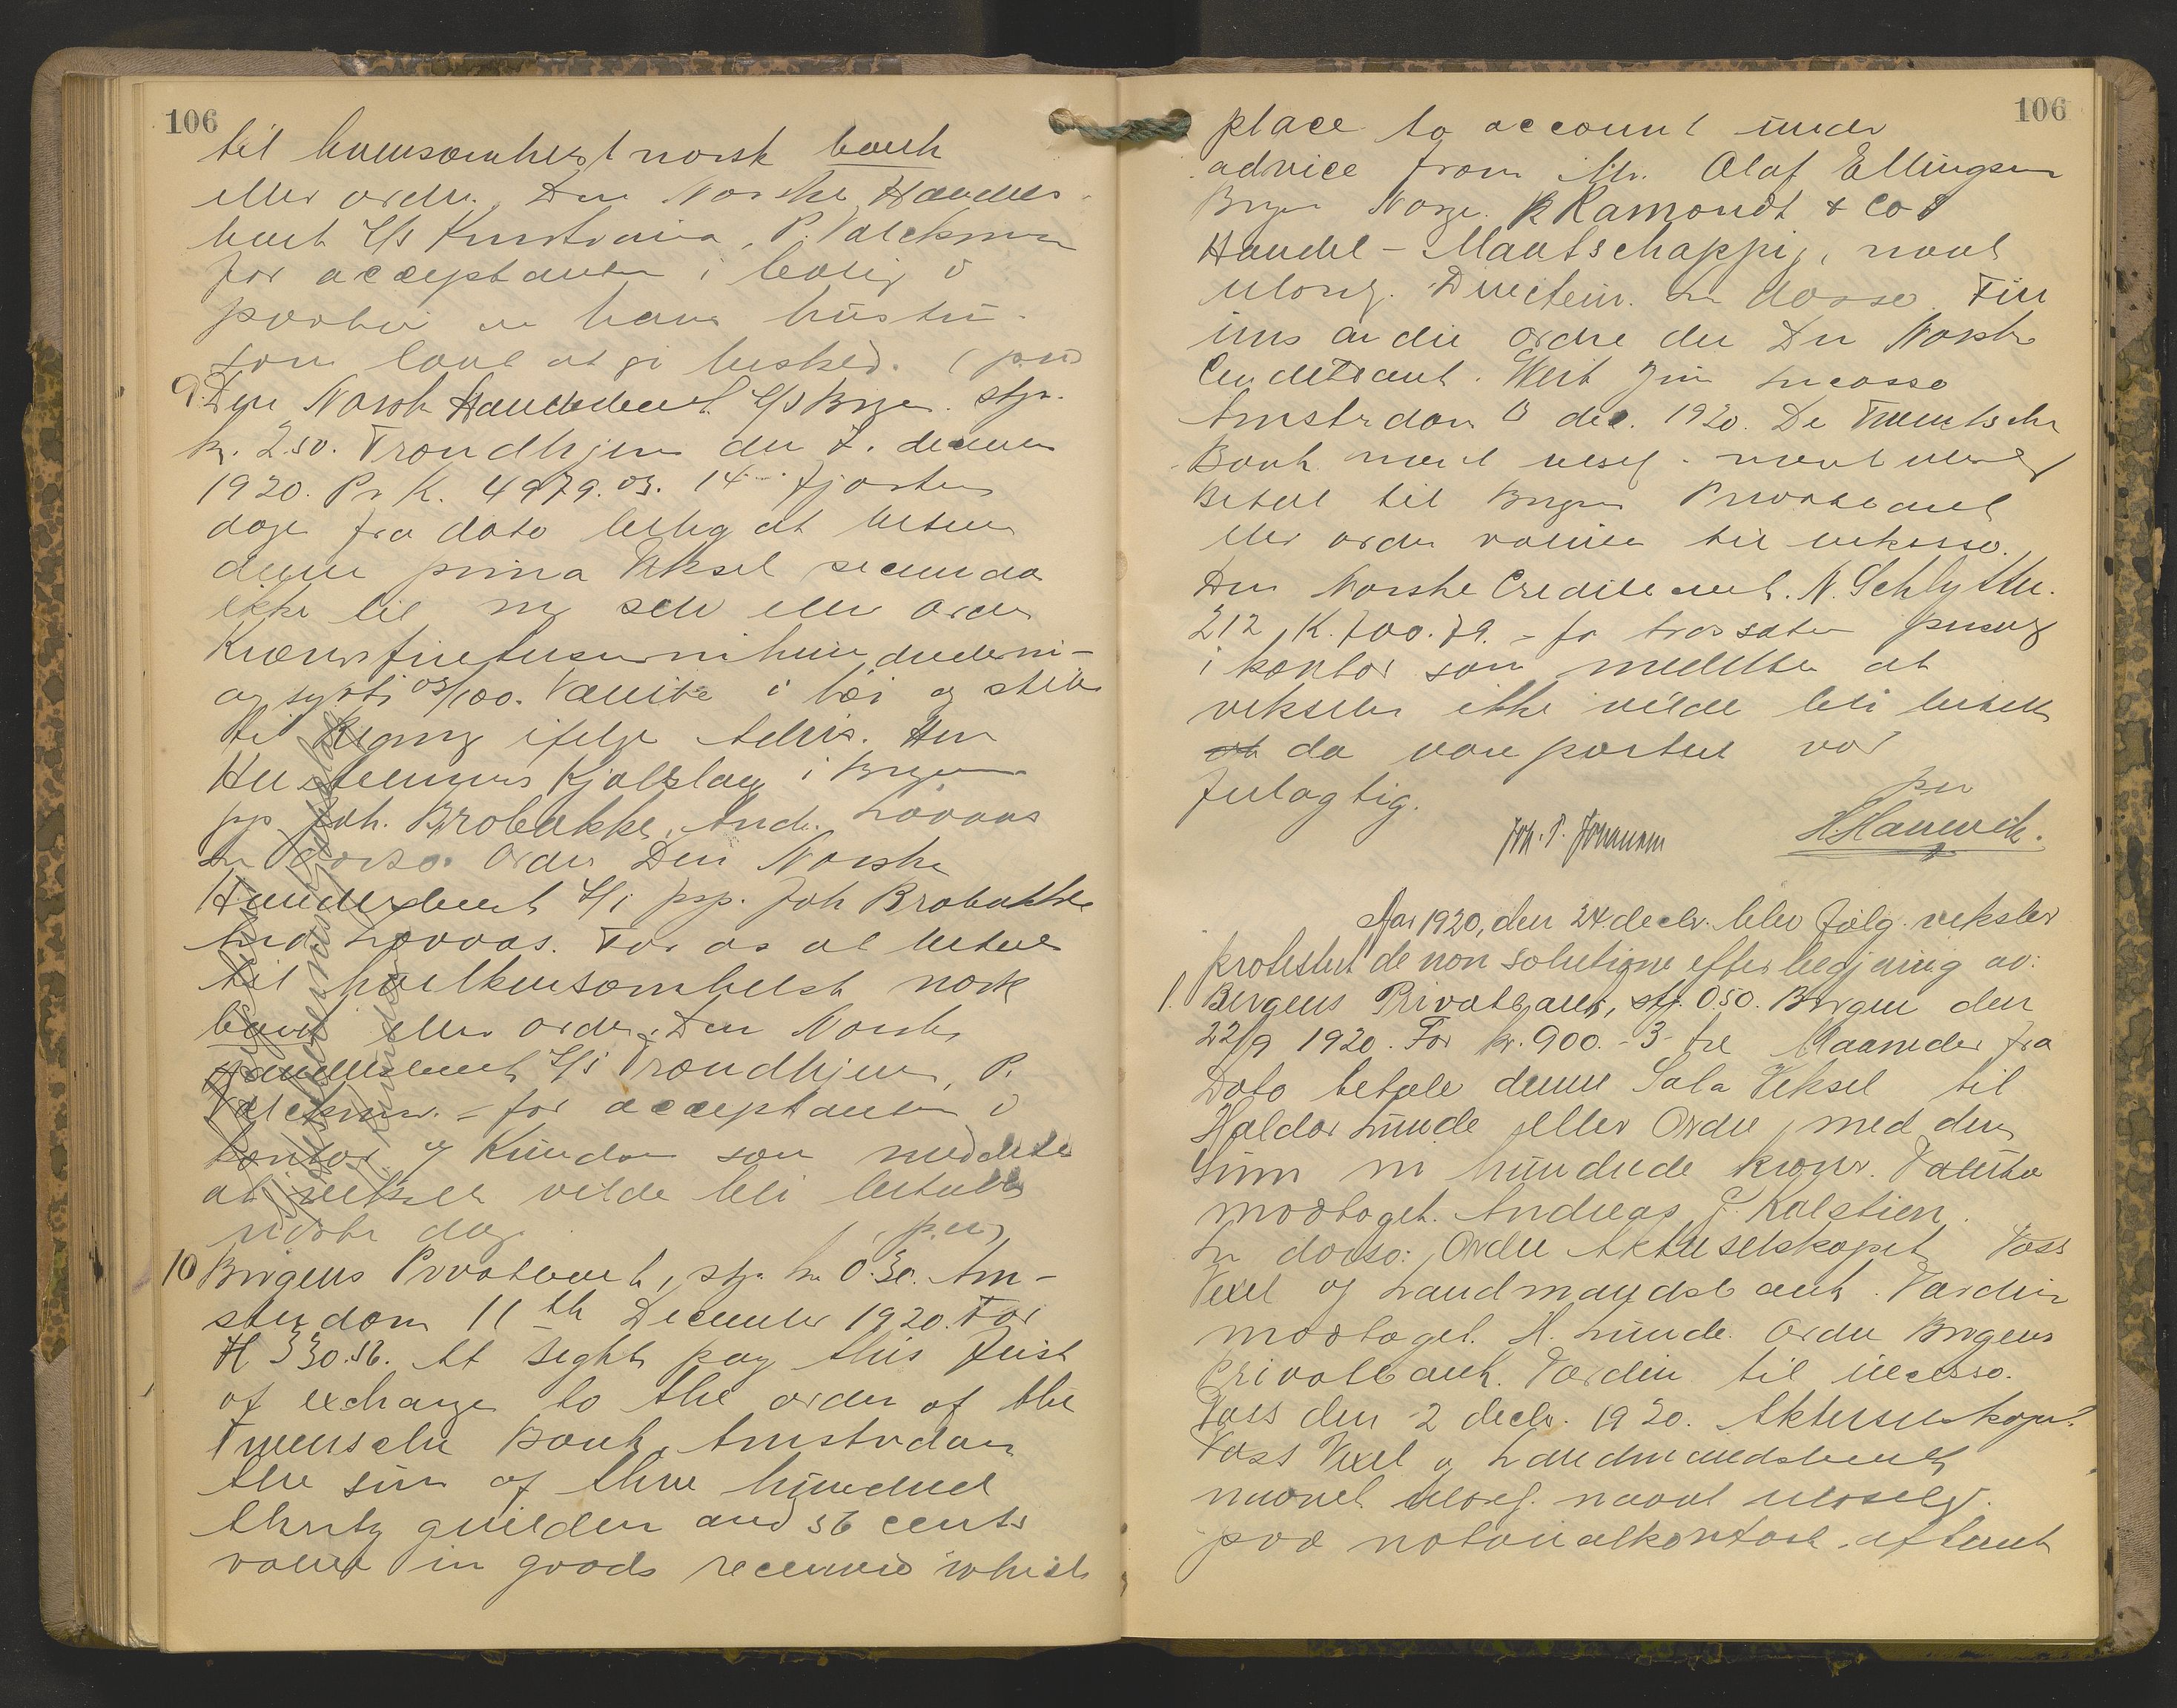 106
til hvemsomhelst norsk bank
eller ordre. Den Norske Handels-
bank A/S Kristiania, P. Valeksen
for acceptanten i bolig o
portrait en hans hustru
som lovet at gi besked. (p.u)
9. Den Norske Handelsbank A/S Bergen. stp.
kr. 2.50. Trondhjem den 7. december
1920. Pr K. 4979.03. 14 - fjorten
dage fra dato behag at betale
denne prima Veksel secunda
ikke til mig selv eller ordre
Kroner firetusen nihundredeni-
og sytti 03/100. Valuta i bei og stilles
til Regning ifølge Advis. Herr
pp. Joh. Brobakke, And. Lovaas
In dorso. Ordre Den Norske
Handelsbank A/S pp. Joh Brobakke
And. Lovaas. For os at betale
til hvilkensomhelst norsk
bank eller ordre. Den Norske
Handelsbank A/S Trondhjem, P.
Valeksen. - for acceptanten i
kontor og Kunden som meddelte
at veksel vilde bli betalt
næste dag. (p.u)
10 Bergens Privatbank, stp. kr. 0.30. Am-
sterdam 11th December 1920. For
Hfl 330.56. At sight pay this first
of exchange to the order of the
Twensche Bank, Amsterdam
the sum of three hundred
thirty guilden and 56 cents
value in goods received which
106
place to account under
advice from Mr. Olaf Ellingsen
Bergen Norge. p Ramondt & Co's
Handel-Maatschappij, navnet
ulæsel. Directeur. In dorso. Für
uns an die ordre der Den Norske
Creditbank. Wert zum Incasso
Amsterdam 13 dec. 1920. De Twentsche
Bank navnet ulæsel. navnet ulæselig
Betal til Bergens Privatbank
eller ordre valuta til inkasso.
Den Norske Creditbank. N. Schlytter.
212, K. 700.79. - for trassaten personlig
i kontor som meddelte at
vekselen ikke vilde bli betalt
da varepartiet var
feilagtig.
pen
Joh. P. Johannesen
Aar 1920, den 24. decbr. blev følg. veksler
protestert de non solutione efter begjæring av:
1. Bergens Privatbank, stp. 0.50. Bergen den
22/9 1920. For kr. 900. - 3 - tre Maaneder fra
Dato betale denne Sola Veksel til
Haldor Lunde eller Ordre med den
Sum ni hundrede kroner. Valuta
modtaget. Andreas J. Kalstien.
In dorso: Ordre Aktieselskapet Voss
Vexel og Landmandsbank. Værdien
modtaget. H. Lunde. Ordre Bergens
Privatbank. Værdien til incasso.
Voss den 2 decbr. 1920. Aktieselskapet
Voss Vexel og Landmandsbank
navnet ulæsel. navnet ulæselig.
paa notarialkontoret. aftent